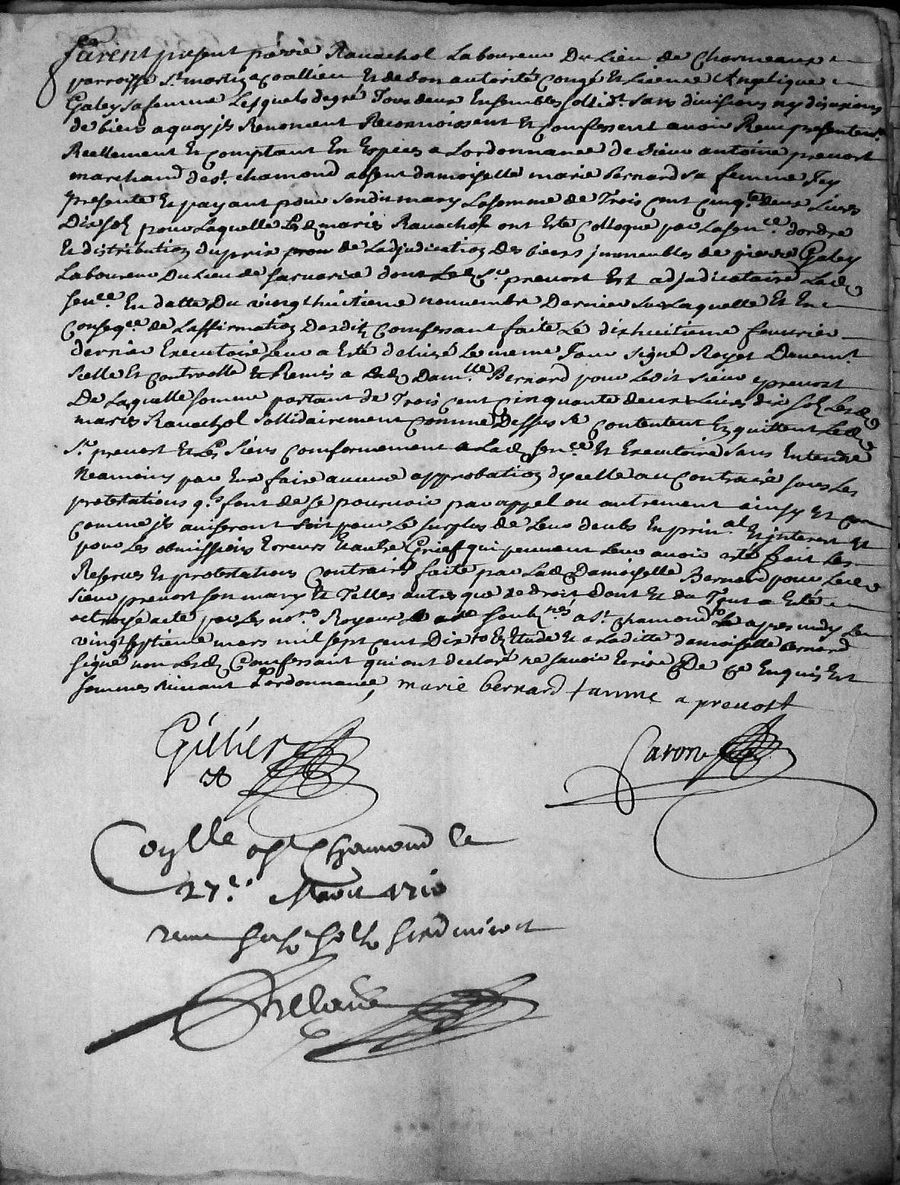 furent present pierre Ravachol Laboureur Du Lieu de Charmeaux
parroisse St. Martin a Coallieu Et de son autorité Congé Et Licence Angelique
Galey sa femme Lesquels de gré Tous deux Ensembles sollidt. sans division ny discution
de biens a quoy ils Renoncent Reconnoissent Et Confessent avoir Receu presentemt.
Reellement Et Comptant En Especes a Lordonnance de Sieur antoine prevost
marchand de st. chamond absent damoiselle marie Bernard sa femme Icy
presente Et payant pour sondit mary La somme de Trois Cent Cinqte. deux Livres
Dix sol pour Laquelle Lesd mariés Ravachol ont Esté Colloqué par La sence. dordre
Et distribution du prix de Ladjudication Des biens jmmeubles de pierre Galey
Laboureur Du Lieu de dont Led Sr. prevost Est adjudicataire Lad
sence. En datte Du vingthuitieme novembre Dernier sur Laquelle Et En
Conseqce. de Laffirmation Desdits Confessant faite Le dixhuitieme fevrier
dernier Executoire Leur a Esté delivré Le meme Jour signé Royet Deuemt.
scellé Et Controllé Et Remis a Lad Damlle. Bernard pour Ledit sieur prevost
De Laquelle somme portant de Trois Cent Cinquante deux Livres dix sol Lesd
mariés Ravachol sollidairement Comme Dessus se Contentent En quittent Led
Sr. prevost Et Les siens Conformement a Lad sence. Et Executoire sans Entendre
Neamoins par Eux faire aucune approbation dycelle au Contraire sous Les
protestations qls. font de se pourvoir par appel ou autrement ainsy Et
Comme ils aviseront soit pour Le surplus de Leur deubt En prinal. Et jnterest Et
pour Les obmissions Erreurs Et autre Grief qui peuvent Leur avoir esté fait Les
Reserves Et protestations Contraires faite par Lad Damoiselle Bernard pour Led
sieur prevost son mary Et Telles autres que de droit dont Et du Tout a Esté
octroyé acte par Les nores. Royaux a st. chamond Le apres midy Le
vingt septieme mars mil sept Cent Dix En Etude Et a Laditte damoiselle Bernard
signé non Lesd Confessant qui ont declaré ne savoir Ecrire De Ce Enquis Et
sommés suivant L'ordonnance, marie bernard famme a prevost
Gillier
Caron
Conlle a st Chamond le
27e. Mars 1710